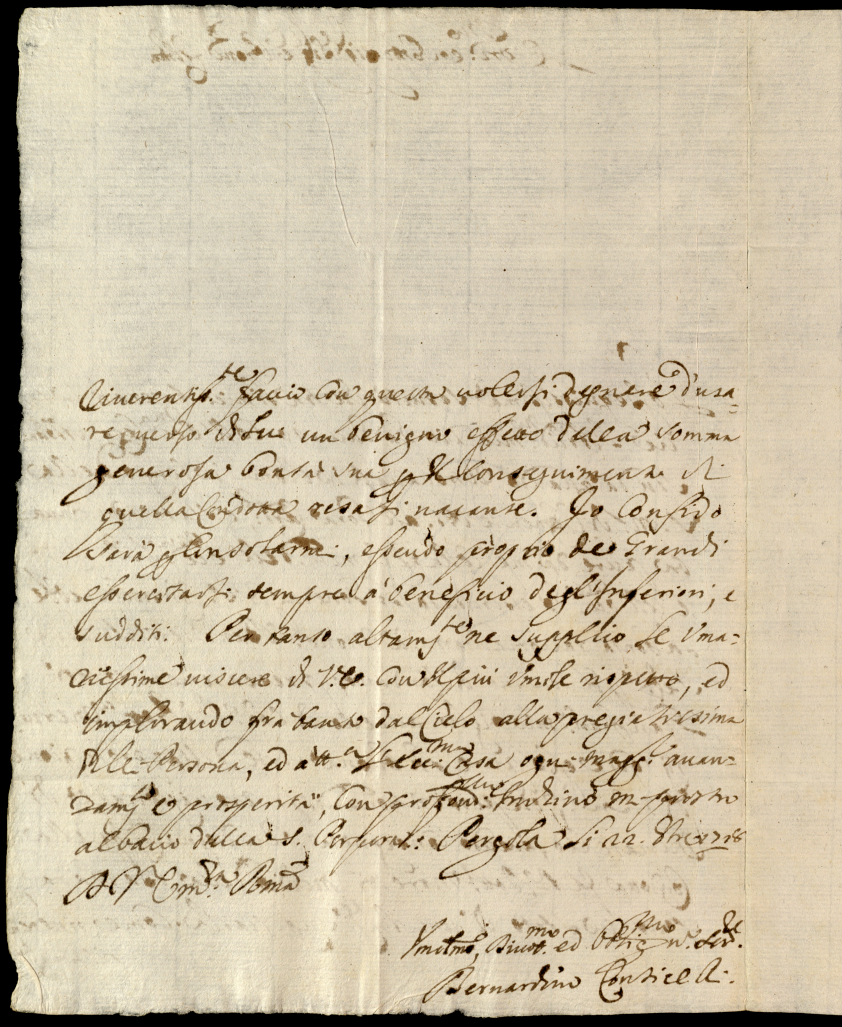 riverentiss.te faccio con questa volersi degnare d'usa-
re verso di lui un benigno effetto della somma
generosa bontà sua p il conseguimento di
quella Condotta resasi vacante. Io Confido
sarà p Consolarmi, essendo proprio de Grandi
essercitarsi sempre à beneficio degl'Inferiori, e
sudditi. Per tanto altamte ne supplico le Uma-
nissime viscere di V.E. con il più umile rispetto, ed
implorando fra tanto dal Cielo alla pregiatissima
di Lei Persona, ed à tt.a Casa ogni magg.r avan-
zamto e prosperità, con profond.ma inchino m
al bacio della S. Porpora. Pergola li 22. 1718
D V Em.za Rma
Umilmo, Divot.mo ed Obblig.mo Ser.
Bernardino